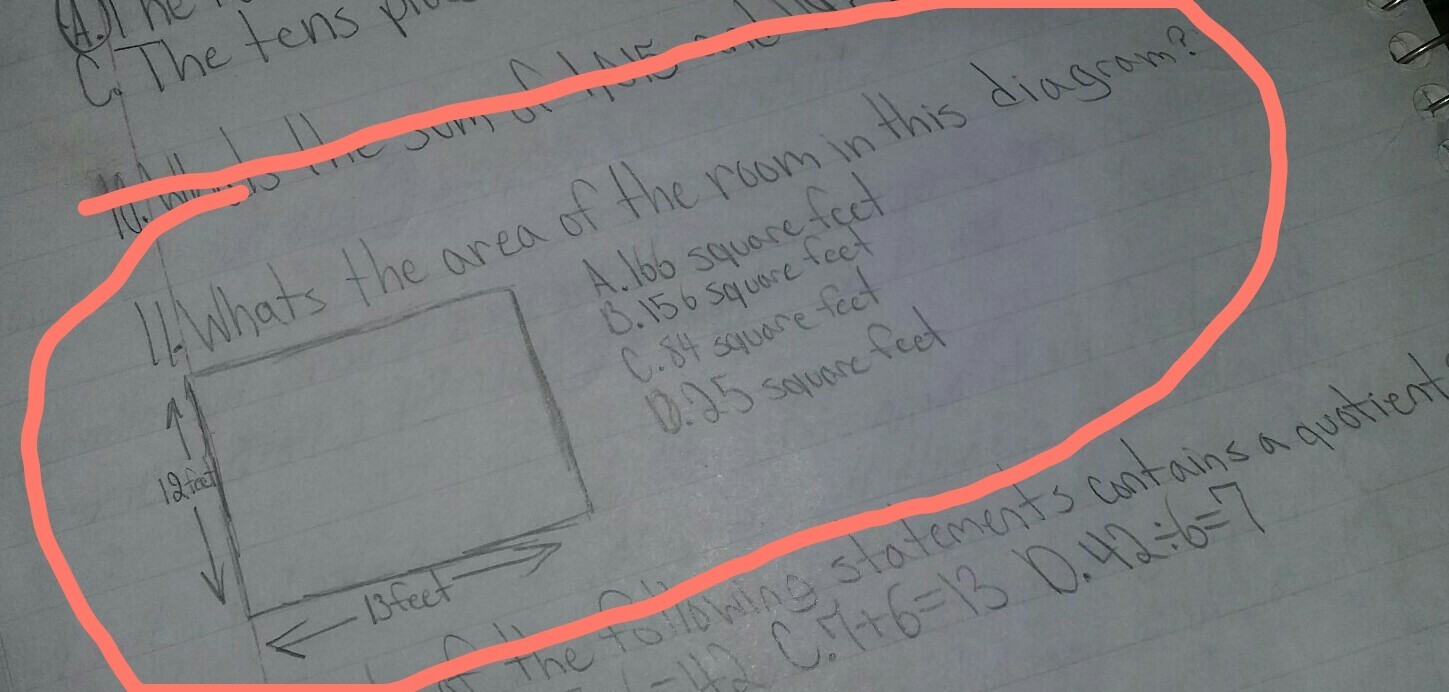 (A.) The
C. The tens
10. What is the sum of 4,615 and
11. Whats the area of the room in this diagram?
A. 166 square feet
B. 156 square feet
C. 84 square feet
D. 25 square feet
12 feet
13 feet
of the following statements contains a quotient
42 C. 7+6=13 D. 42÷6=7